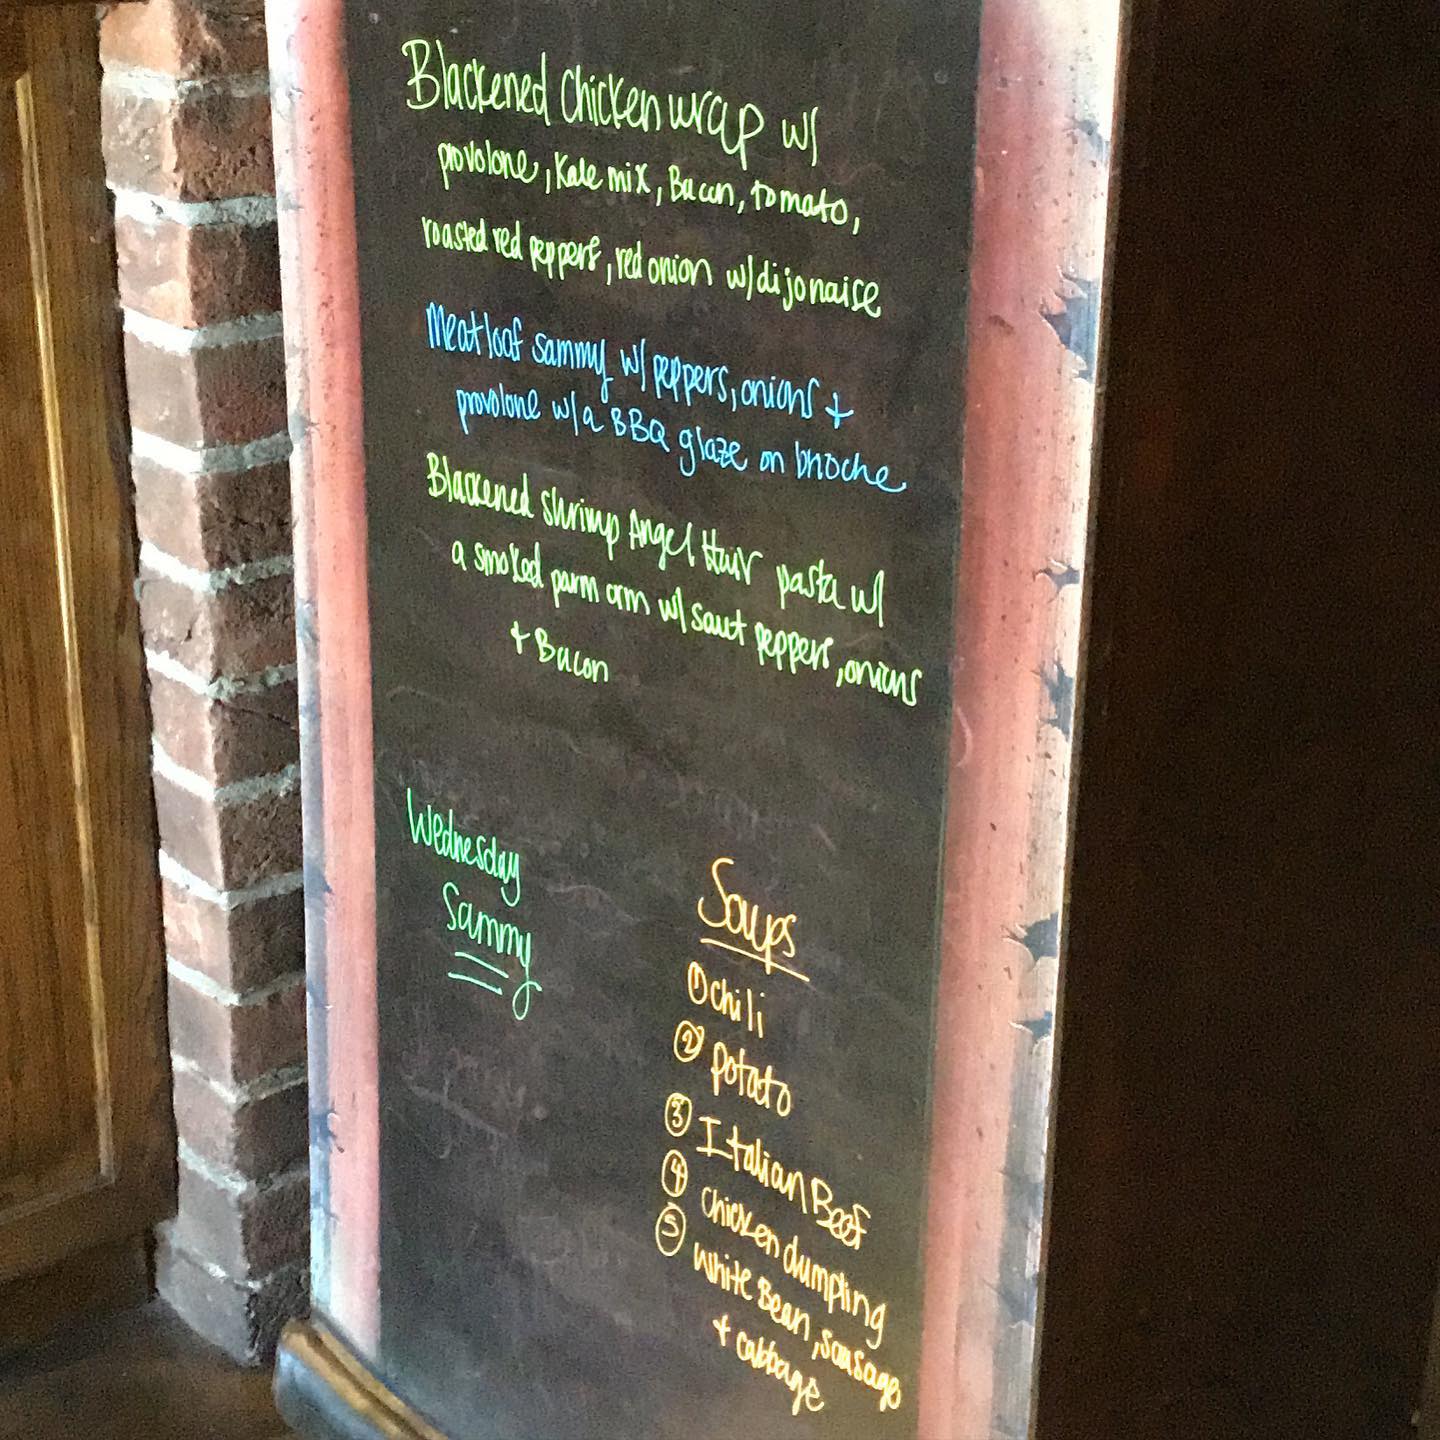 Blackened Chicken wrap w/
provolone, Kale mix, Bacon, tomato,
roasted red peppers, red onion w/ dijonaise
Meatloaf sammy w/ peppers, onions +
provolone w/ a BBQ glaze on brioche
Blackened shrimp Angel Hair pasta w/
a smoked parm crm w/ saut peppers, onions
+ Bacon
Wednesday
Sammy
Soups
① Chili
② Potato
③ Italian Beef
④ Chicken dumpling
⑤ White Bean, sausage
+ cabbage